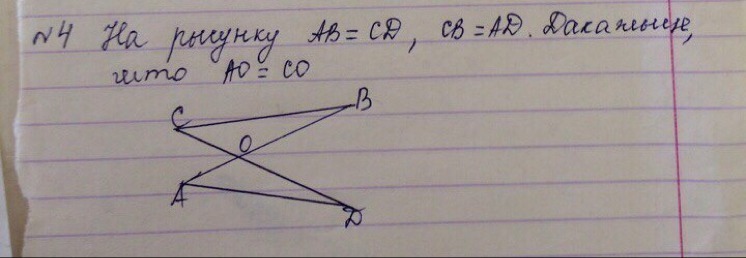 №4 На рисунку AB = CD, CB = AD. Дакажыце,
што AO = CO
B
C
O
A
D